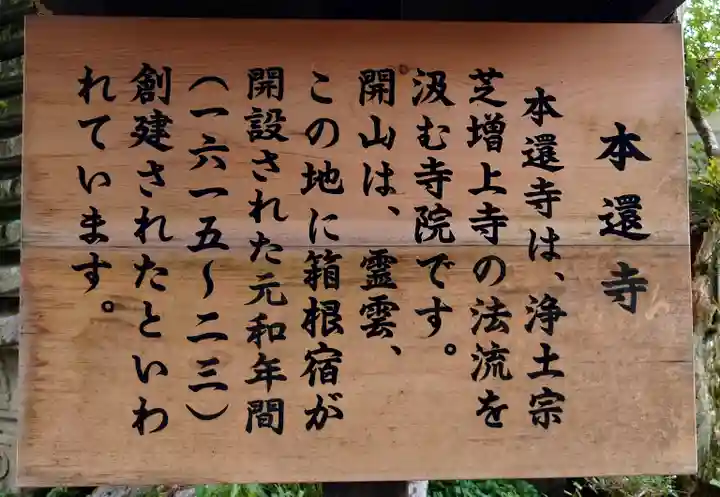 本還寺
本還寺は、浄土宗
芝増上寺の法流を
汲む寺院です。
開山は、霊雲、
この地に箱根宿が
開設された元和年間
(一六一五〜二三)
創建されたといわ
れています。